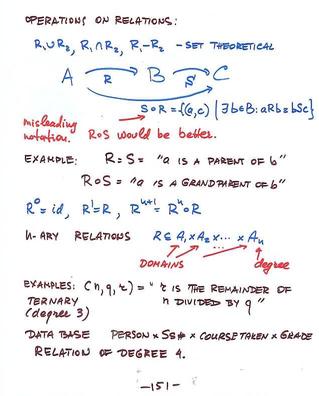 OPERATIONS ON RELATIONS:
R₁∪R₂, R₁∩R₂, R₁-R₂ - SET THEORETICAL
A R B S C
S∘R = {(a,c) | ∃b∈B: aRb & bSc}
misleading
notation. R∘S would be better.
EXAMPLE: R = S = "a IS A PARENT OF b"
R∘S = "a IS A GRANDPARENT OF b"
R⁰ = id, R¹=R, Rⁿ⁺¹ = Rⁿ∘R
n-ARY RELATIONS R⊆A₁×A₂×...×Aₙ
DOMAINS degree
EXAMPLES: (n, q, r) = "r IS THE REMAINDER OF
TERNARY n DIVIDED BY q"
(degree 3)
DATA BASE PERSON × SS# × COURSE TAKEN × GRADE
RELATION OF DEGREE 4.
-151-